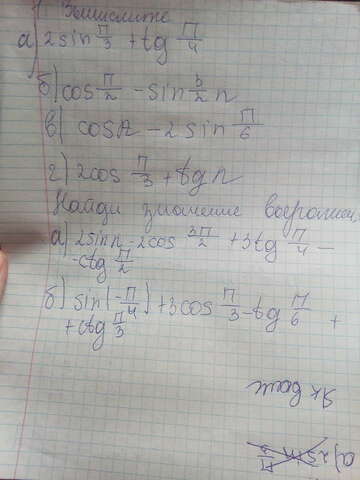 1 Вычислите
а) 2 sin π/3 + tg π/4
б) cos π/2 - sin 3/2 π
в) cos π - 2 sin π/6
г) 2 cos π/3 + tg π
Найди значение
а) 2 sin π - 2 cos 3π/2 + 3 tg π/4 -
- ctg π/2
б) sin (-π/4) + 3 cos π/3 - tg π/6 +
+ ctg π/3